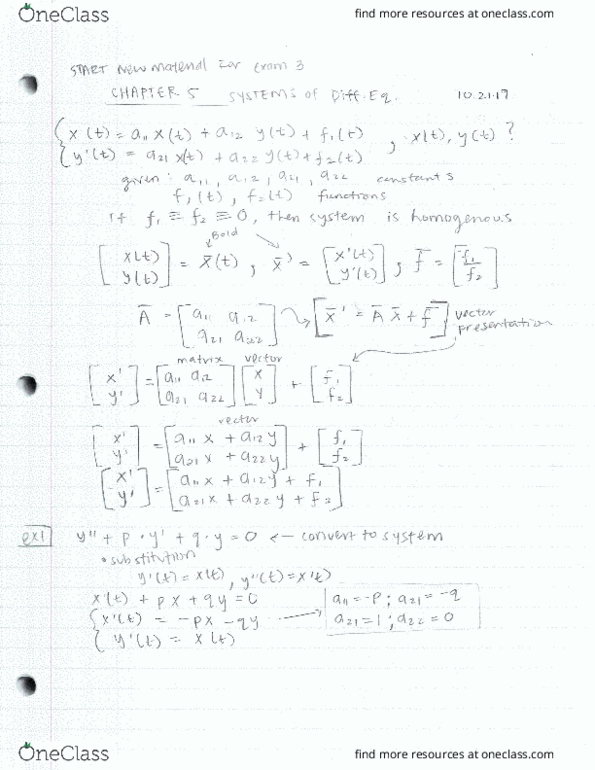 OneClass
find more resources at oneclass.com
START New material For Exam 3
CHAPTER 5 SYSTEMS of Diff. Eq. 10.21.17
{ x (t) = a11 x(t) + a12 y(t) + f1(t) , x(t), y(t) ?
{ y'(t) = a21 x(t) + a22 y(t) + f2(t)
given : a11, a12, a21, a22 constants
f1(t), f2(t) functions
If f1 ≡ f2 ≡ 0, then system is homogenous
Bold
[x(t) y(t)] = x̄(t) , x̄' = [x'(t) y'(t)] ; f̄ = [f1 f2]
Ā = [a11 a12 a21 a22] [x̄' = Ā x̄ + f̄] vector presentation
matrix vector
[x' y'] = [a11 a12 a21 a22] [x y] + [f1 f2]
vector
[x' y'] = [a11 x + a12 y a21 x + a22 y] + [f1 f2]
[x' y'] = [a11 x + a12 y + f1 a21 x + a22 y + f2]
ex1 y'' + p · y' + q · y = 0 <— convert to system
• substitution
y'(t) = x(t), y''(t) = x'(t)
x'(t) + px + qy = 0
{ x'(t) = -px - qy
{ y'(t) = x(t)
a11 = -p ; a21 = -q
a21 = 1 ; a22 = 0
OneClass
find more resources at oneclass.com